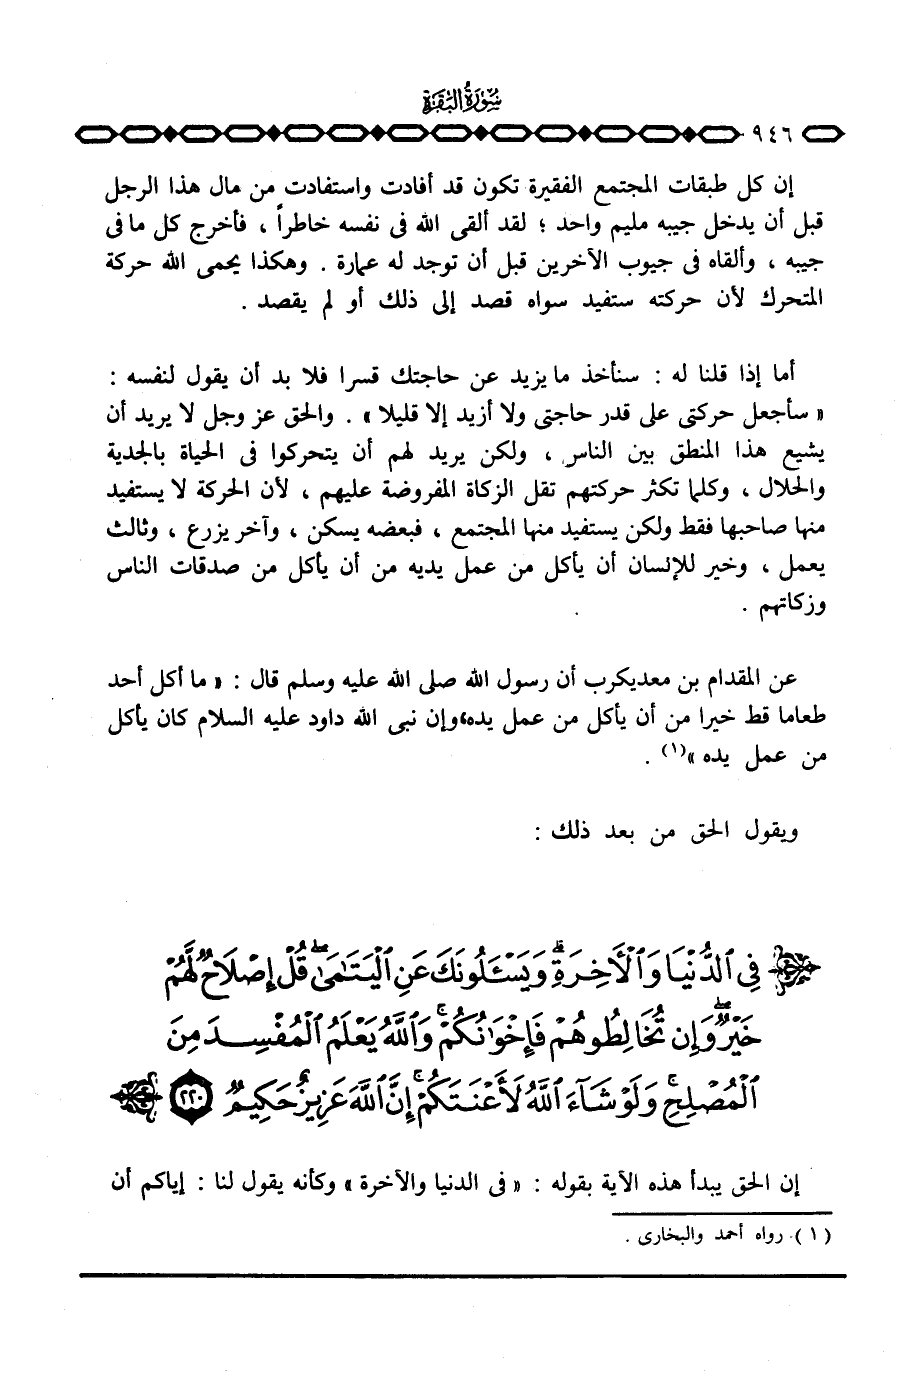 سورة البقرة
٩٤٦
إن كل طبقات المجتمع الفقيرة تكون قد أفادت واستفادت من مال هذا الرجل
قبل أن يدخل جيبه مليم واحد ؛ لقد ألقى الله فى نفسه خاطراً ، فأخرج كل ما فى
جيبه ، وألقاه فى جيوب الآخرين قبل أن توجد له عمارة . وهكذا يحمى الله حركة
المتحرك لأن حركته ستفيد سواه قصد إلى ذلك أو لم يقصد .
أما إذا قلنا له : سنأخذ ما يزيد عن حاجتك قسرا فلا بد أن يقول لنفسه :
« سأجعل حركتى على قدر حاجتى ولا أزيد إلا قليلا » . والحق عز وجل لا يريد أن
يشيع هذا المنطق بين الناس ، ولكن يريد لهم أن يتحركوا فى الحياة بالجدية
والحلال ، وكلما تكثر حركتهم تقل الزكاة المفروضة عليهم ، لأن الحركة لا يستفيد
منها صاحبها فقط ولكن يستفيد منها المجتمع ، فبعضه يسكن ، وآخر يزرع ، وثالث
يعمل ، وخير للإنسان أن يأكل من عمل يديه من أن يأكل من صدقات الناس
وزكاتهم .
عن المقدام بن معديكرب أن رسول الله صلى الله عليه وسلم قال : « ما أكل أحد
طعاما قط خيرا من أن يأكل من عمل يده،وإن نبى الله داود عليه السلام كان يأكل
من عمل يده »(١) .
ويقول الحق من بعد ذلك :
فِى ٱلدُّنْيَا وَٱلْأَخِرَةِۗ وَيَسْـَٔلُونَكَ عَنِ ٱلْيَتَـٰمَىٰۖ قُلْ إِصْلَاحٌ لَّهُمْ
خَيْرٌۖ وَإِن تُخَالِطُوهُمْ فَإِخْوَٰنُكُمْۚ وَٱللَّهُ يَعْلَمُ ٱلْمُفْسِدَ مِنَ
ٱلْمُصْلِحِۚ وَلَوْ شَآءَ ٱللَّهُ لَأَعْنَتَكُمْۚ إِنَّ ٱللَّهَ عَزِيزٌ حَكِيمٌ ٢٢٠
إن الحق يبدأ هذه الآية بقوله : « فى الدنيا والآخرة » وكأنه يقول لنا : إياكم أن
( ١ ) رواه أحمد والبخارى .